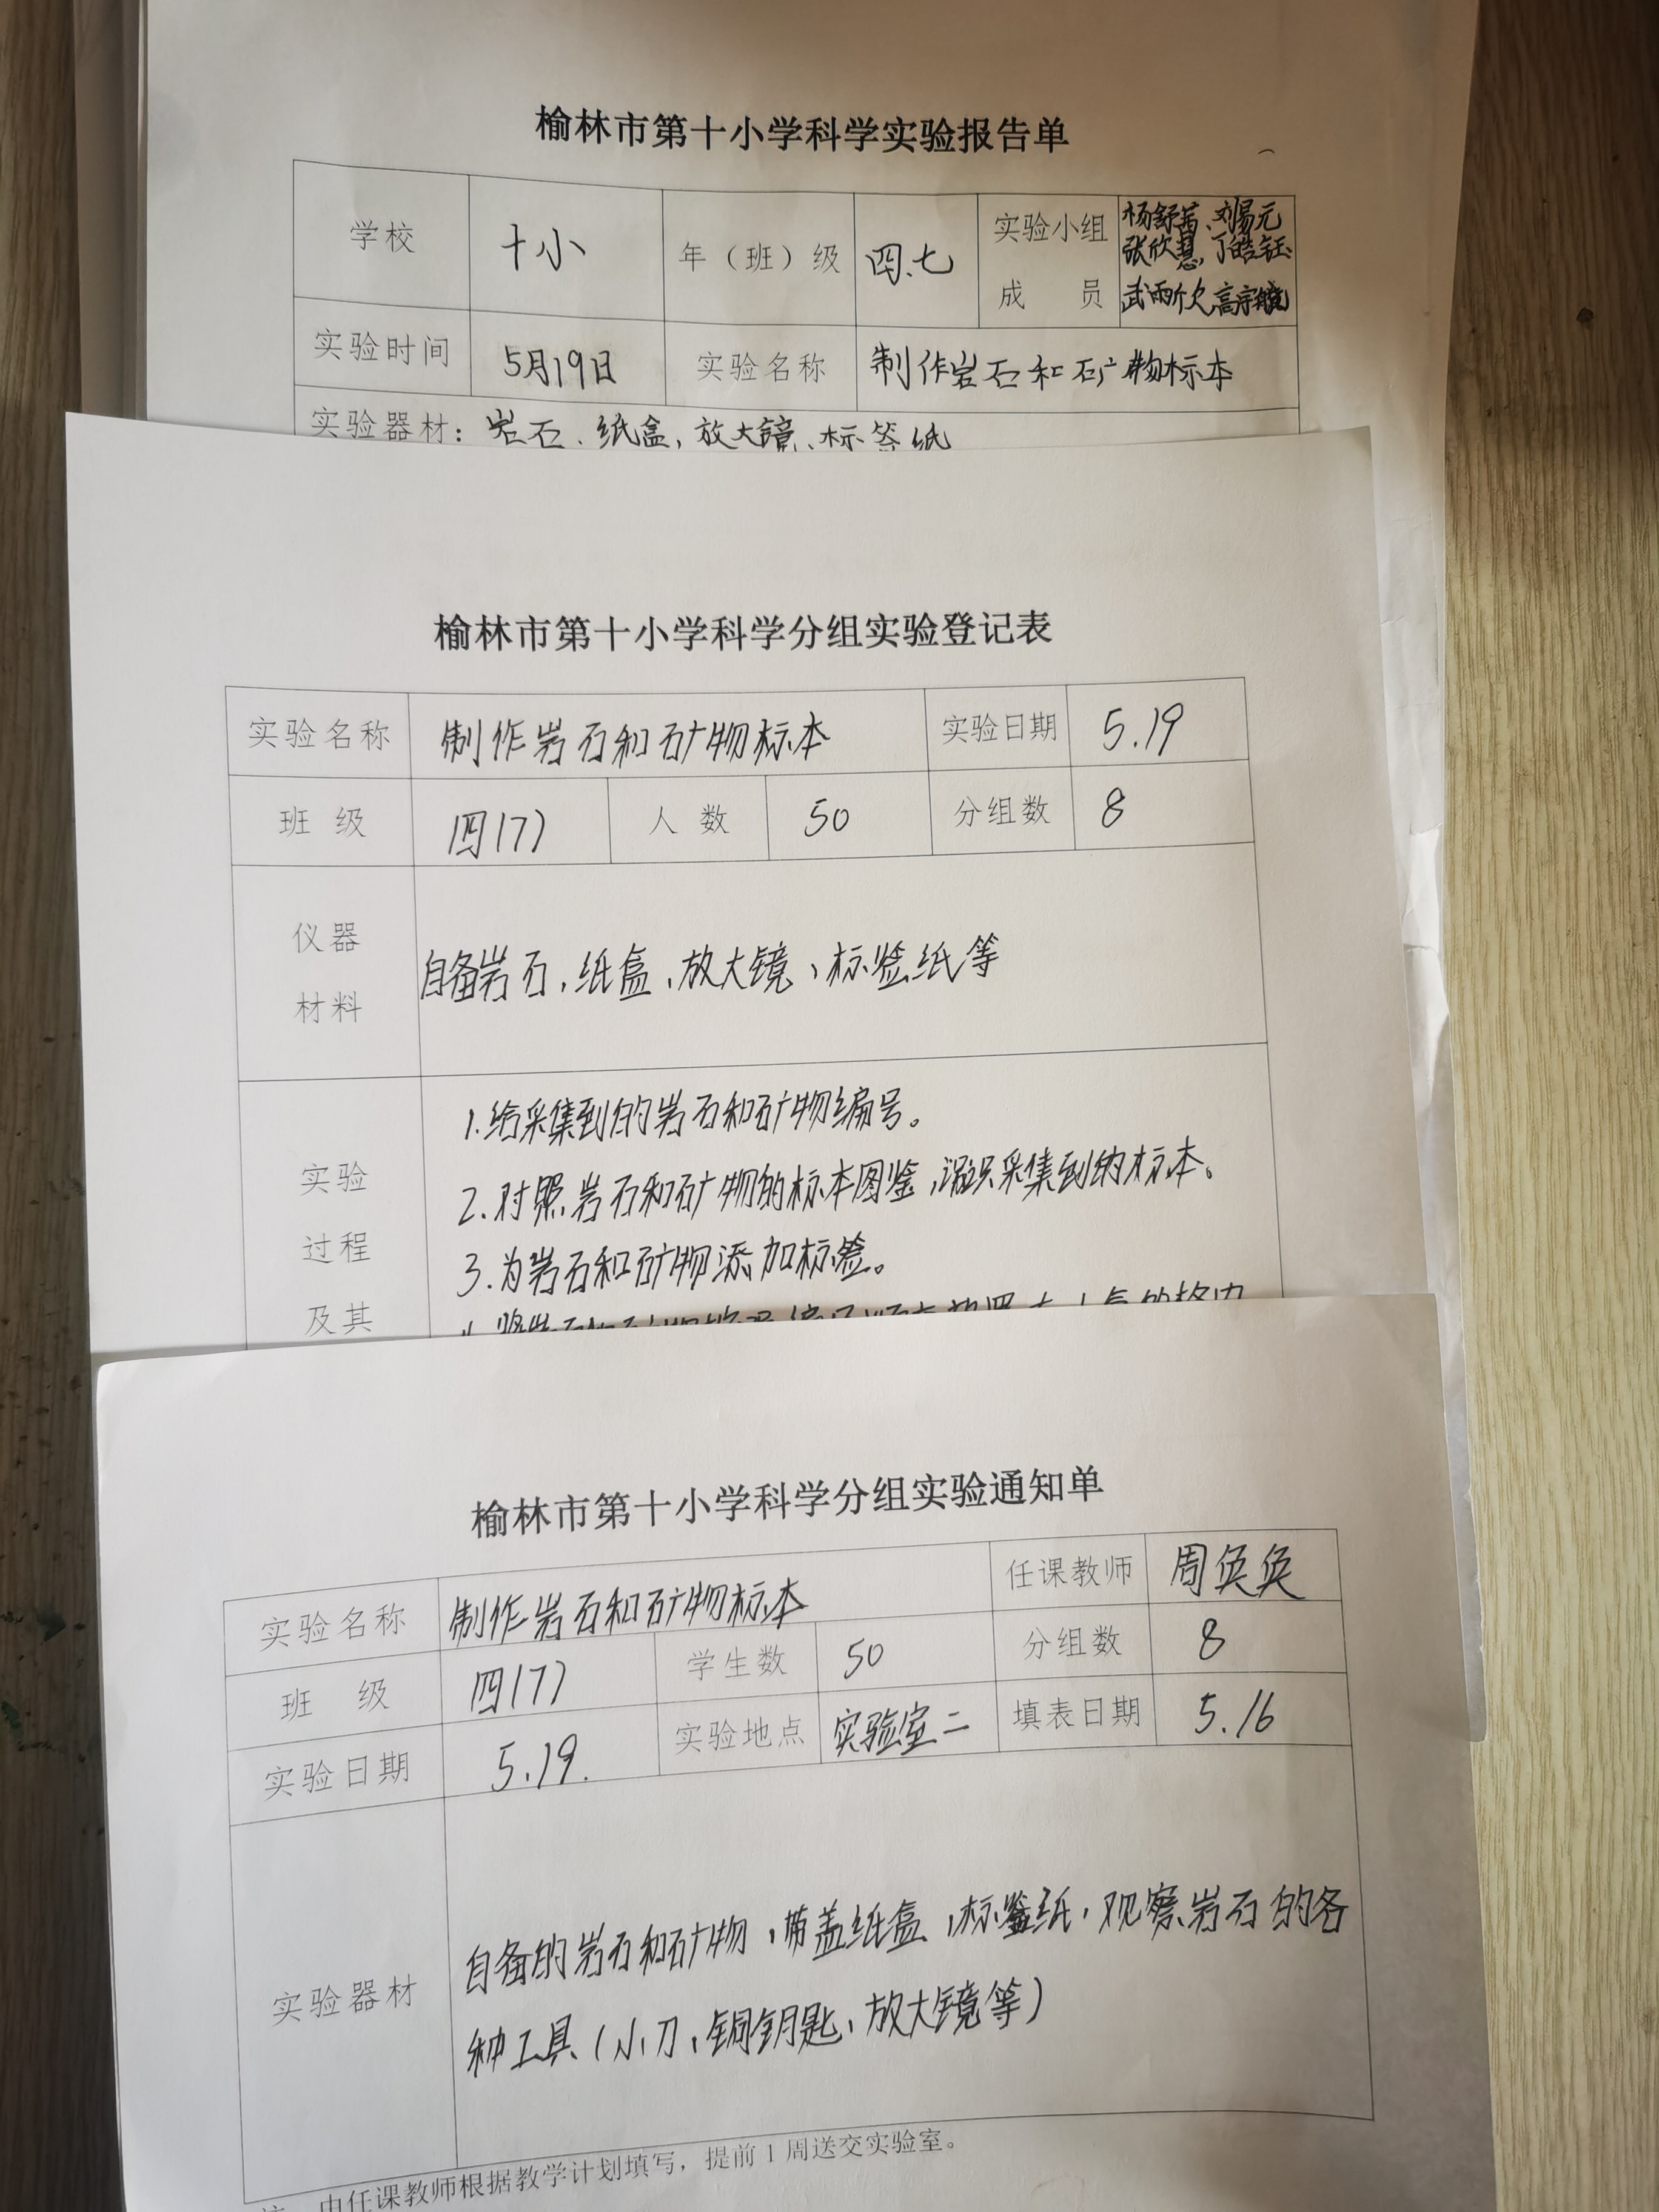 榆林市第十小学科学实验报告单
学校 十小 年（班）级 四.七 实验小组成员 杨舒茜、刘易元
张欣慧，丁皓钰
武雨欣，高宗
实验时间 5月19日 实验名称 制作岩石和矿物标本
实验器材：岩石、纸盒，放大镜、标签纸
榆林市第十小学科学分组实验登记表
实验名称 制作岩石和矿物标本 实验日期 5.19
班 级 四(7) 人 数 50 分组数 8
仪器
材料
自备岩石、纸盒、放大镜、标签纸等
实验
过程
及其
1.给采集到的岩石和矿物编号。
2.对照岩石和矿物的标本图鉴，识采集到的标本。
3.为岩石和矿物添加标签。
榆林市第十小学科学分组实验通知单
实验名称 制作岩石和矿物标本 任课教师 周
班 级 四(7) 学生数 50 分组数 8
实验日期 5.19. 实验地点 实验室二 填表日期 5.16
实验器材
自备的岩石和矿物，带盖纸盒、标签纸，观察岩石的各
种工具（小刀、铜钥匙、放大镜等）
由任课教师根据教学计划填写，提前1周送交实验室。